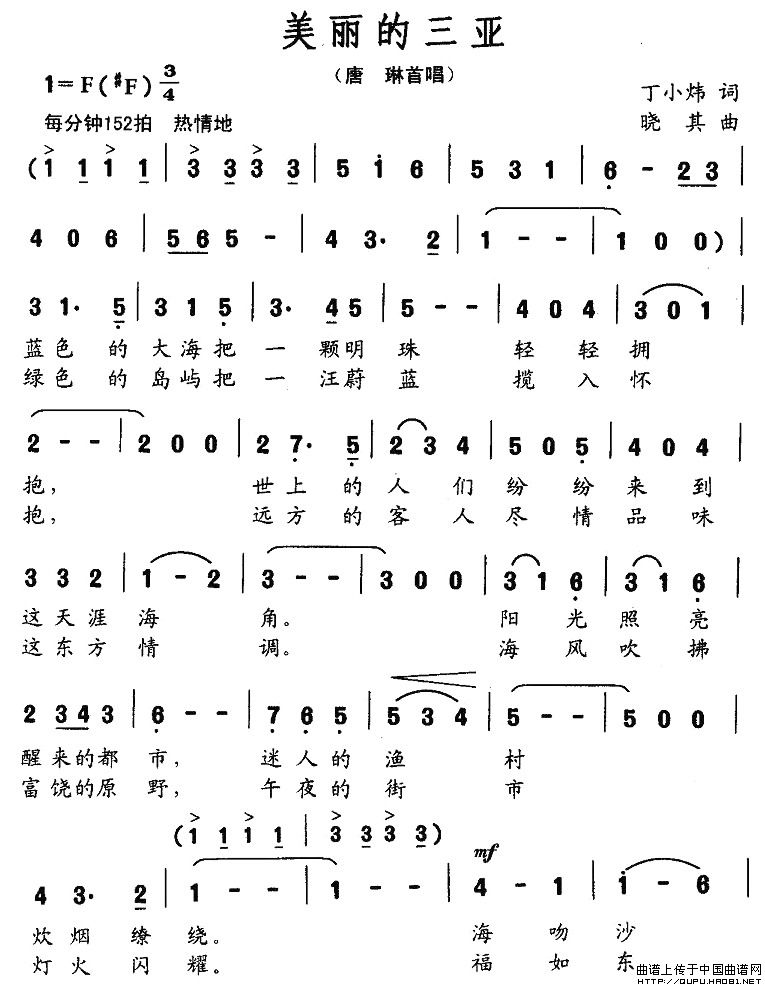 美丽的三亚
（唐　琳首唱）
1=F(♯F) 3/4
丁小炜 词
每分钟152拍　热情地
晓　其 曲
(1 1 1 1 | 3 3 3 3 | 5 i 6 | 5 3 1 | 6 - 2 3 |
4 0 6 | 5 6 5 - | 4 3· 2 | 1 - - | 1 0 0) |
3 1· 5 | 3 1 5 | 3· 4 5 | 5 - - | 4 0 4 | 3 0 1 |
蓝色 的 大海把 一 颗明 珠 轻 轻 拥
绿色 的 岛屿把 一 汪蔚 蓝 揽 入 怀
2 - - | 2 0 0 | 2 7· 5 | 2 3 4 | 5 0 5 | 4 0 4 |
抱， 世上 的 人 们 纷 纷 来 到
抱， 远方 的 客 人 尽 情 品 味
3 3 2 | 1 - 2 | 3 - - | 3 0 0 | 3 1 6 | 3 1 6 |
这天涯 海 角。 阳 光 照 亮
这东方 情 调。 海 风 吹 拂
2 3 4 3 | 6 - - | 7 6 5 | 5 3 4 | 5 - - | 5 0 0 |
醒来的都 市， 迷人的 渔 村
富饶的原 野， 午夜的 街 市
(1 1 1 1 | 3 3 3 3)
mf
4 3· 2 | 1 - - | 1 - - | 4 - 1 | i - 6 |
炊烟 缭 绕。 海 吻 沙
灯火 闪 耀。 福 如 东
曲谱上传于中国曲谱网
HTTP://QUPU.HAO81.NET